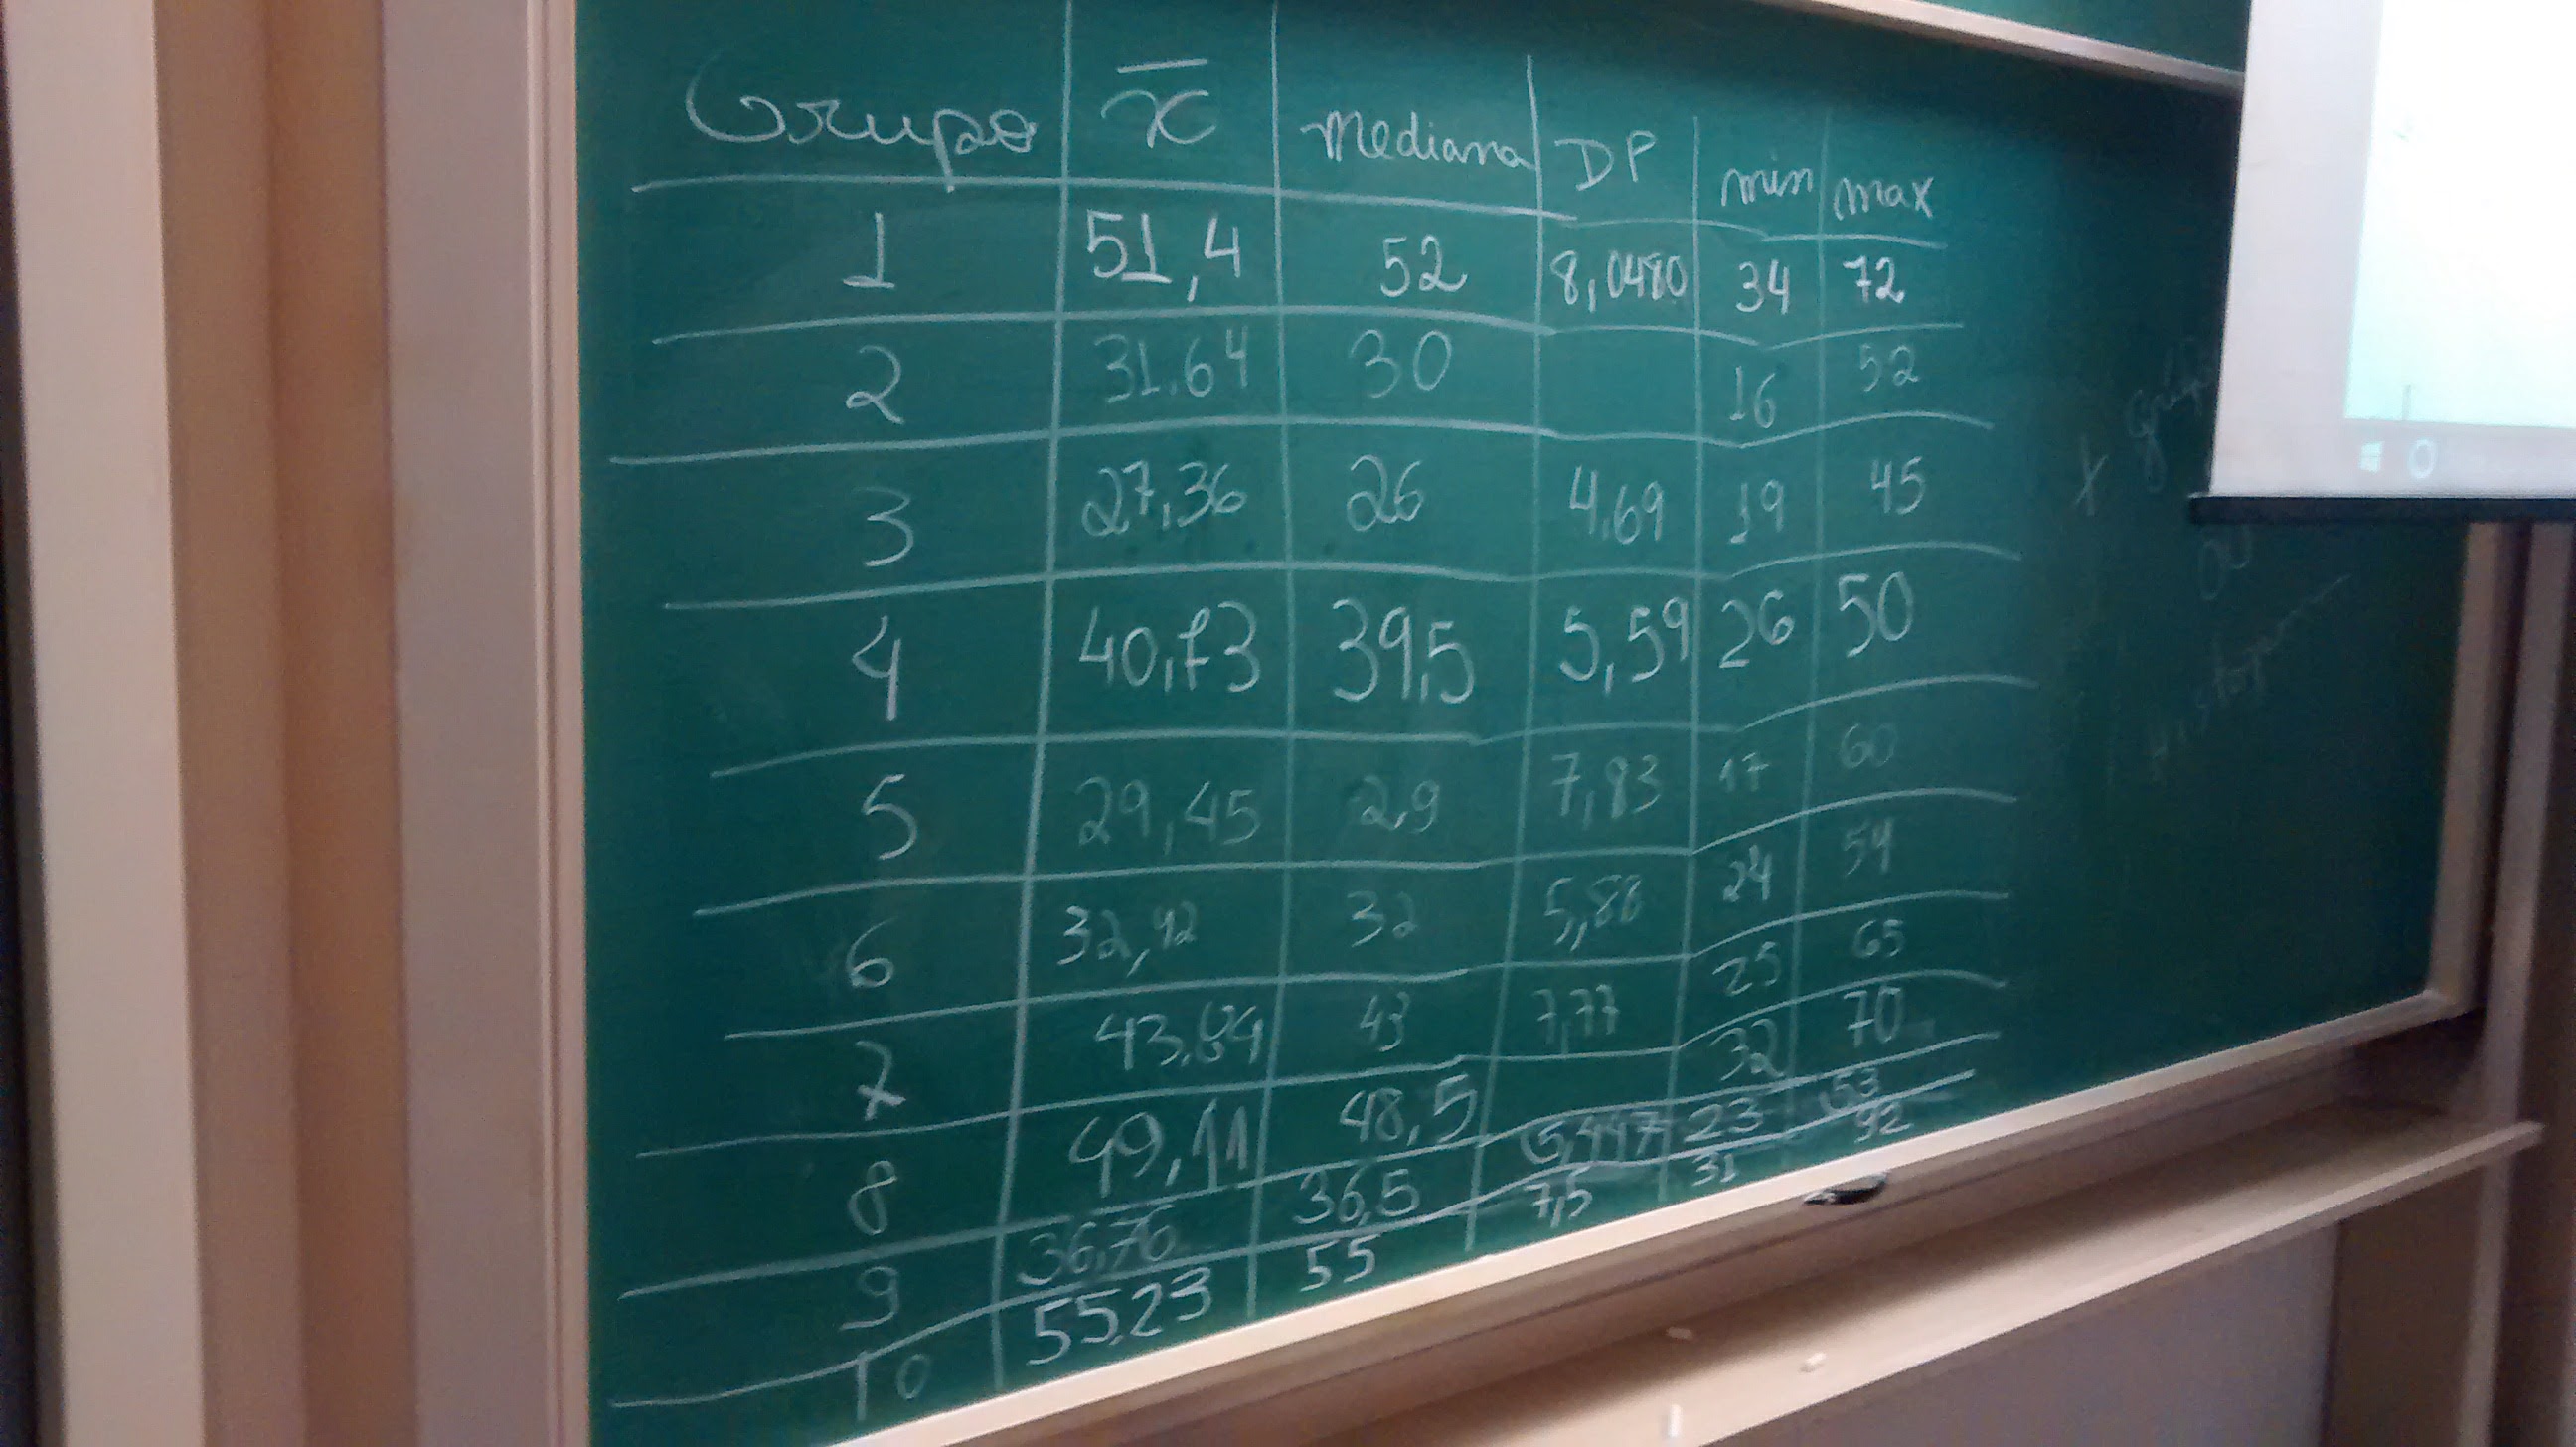 Grupo x̄ Mediana DP min max
1 51,4 52 8,0480 34 72
2 31.64 30 16 52
3 27,36 26 4,69 19 45
4 40,73 39,5 5,59 26 50
5 29,45 29 7,83 17 60
6 32,92 32 5,88 24 54
7 43,84 43 7,77 25 65
8 49,11 48,5 32 70
9 36,76 36,5 23 53
10 55,23 55 7,5 31 92
+
ou